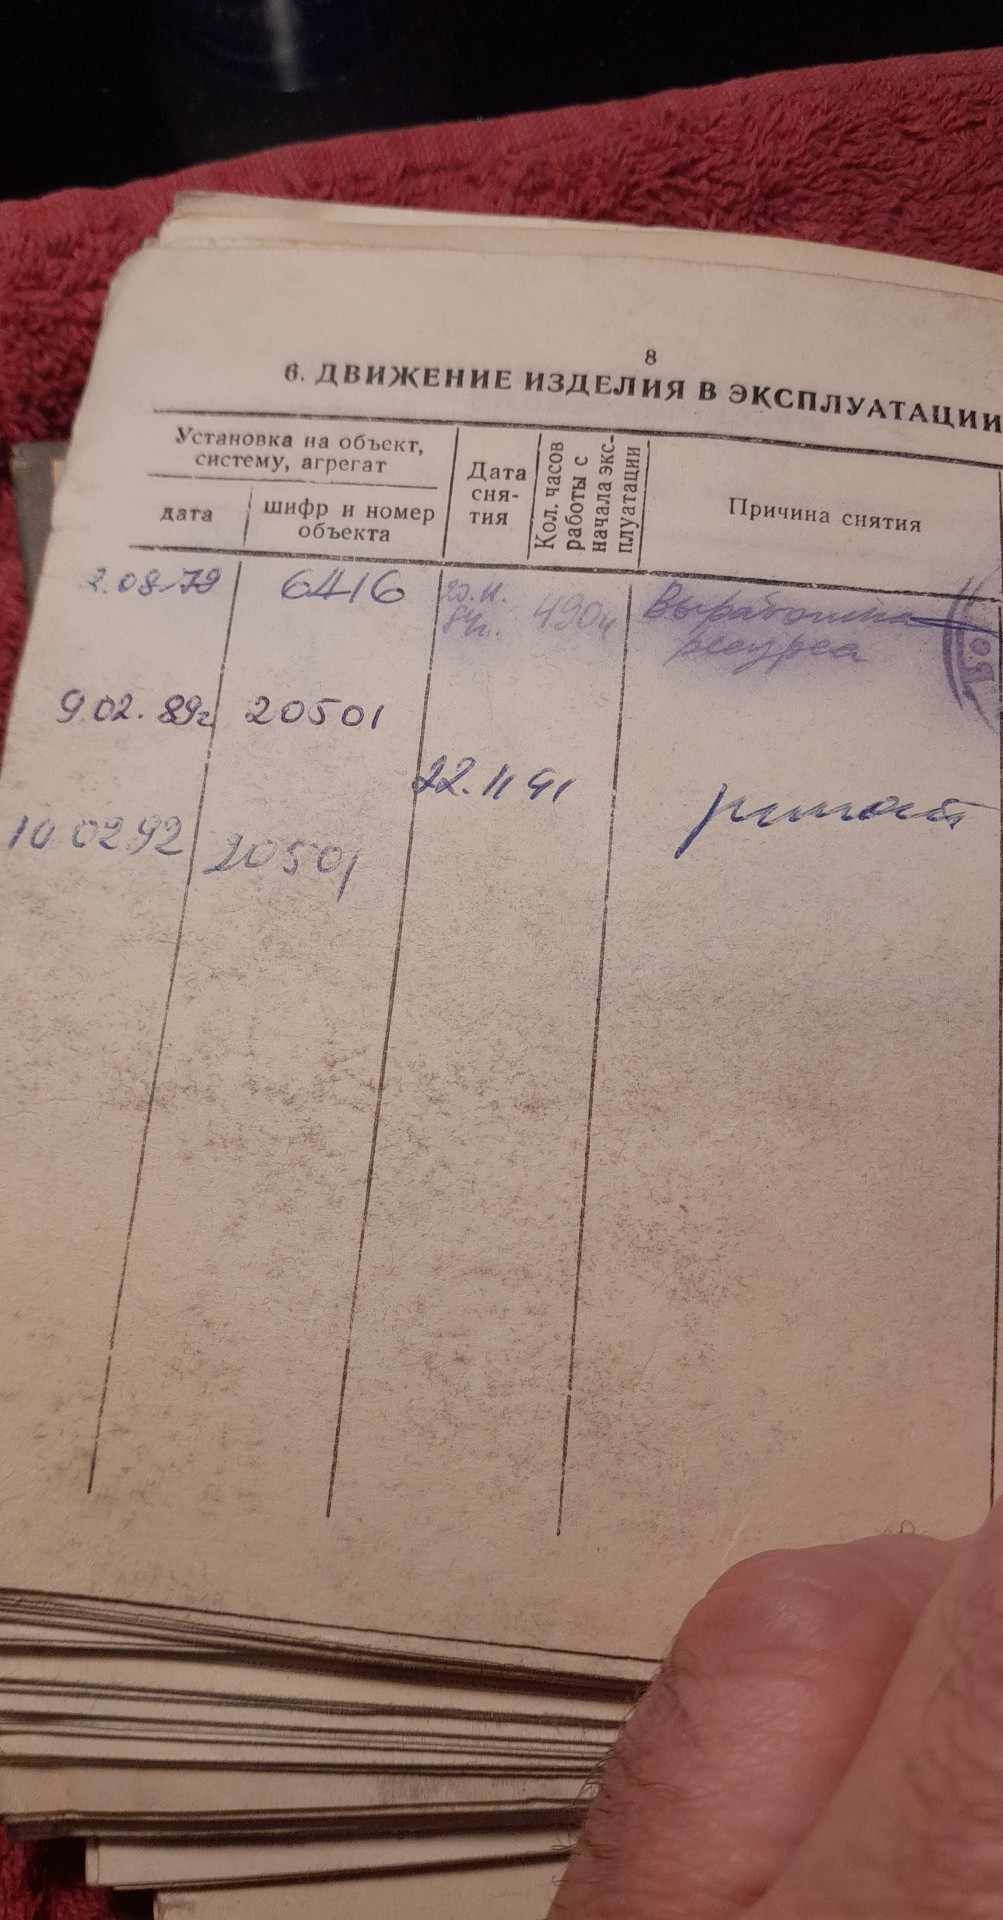 8
6. ДВИЖЕНИЕ ИЗДЕЛИЯ В ЭКСПЛУАТАЦИИ
Установка на объект,
систему, агрегат
дата
шифр и номер
объекта
Дата
сня-
тия
Кол. часов
работы с
начала экс-
плуатации
Причина снятия
2.08.79 6416 490ч Выработка
ресурса
9.02.89г 20501
22.11.91 ремонт
10.02.92 20501